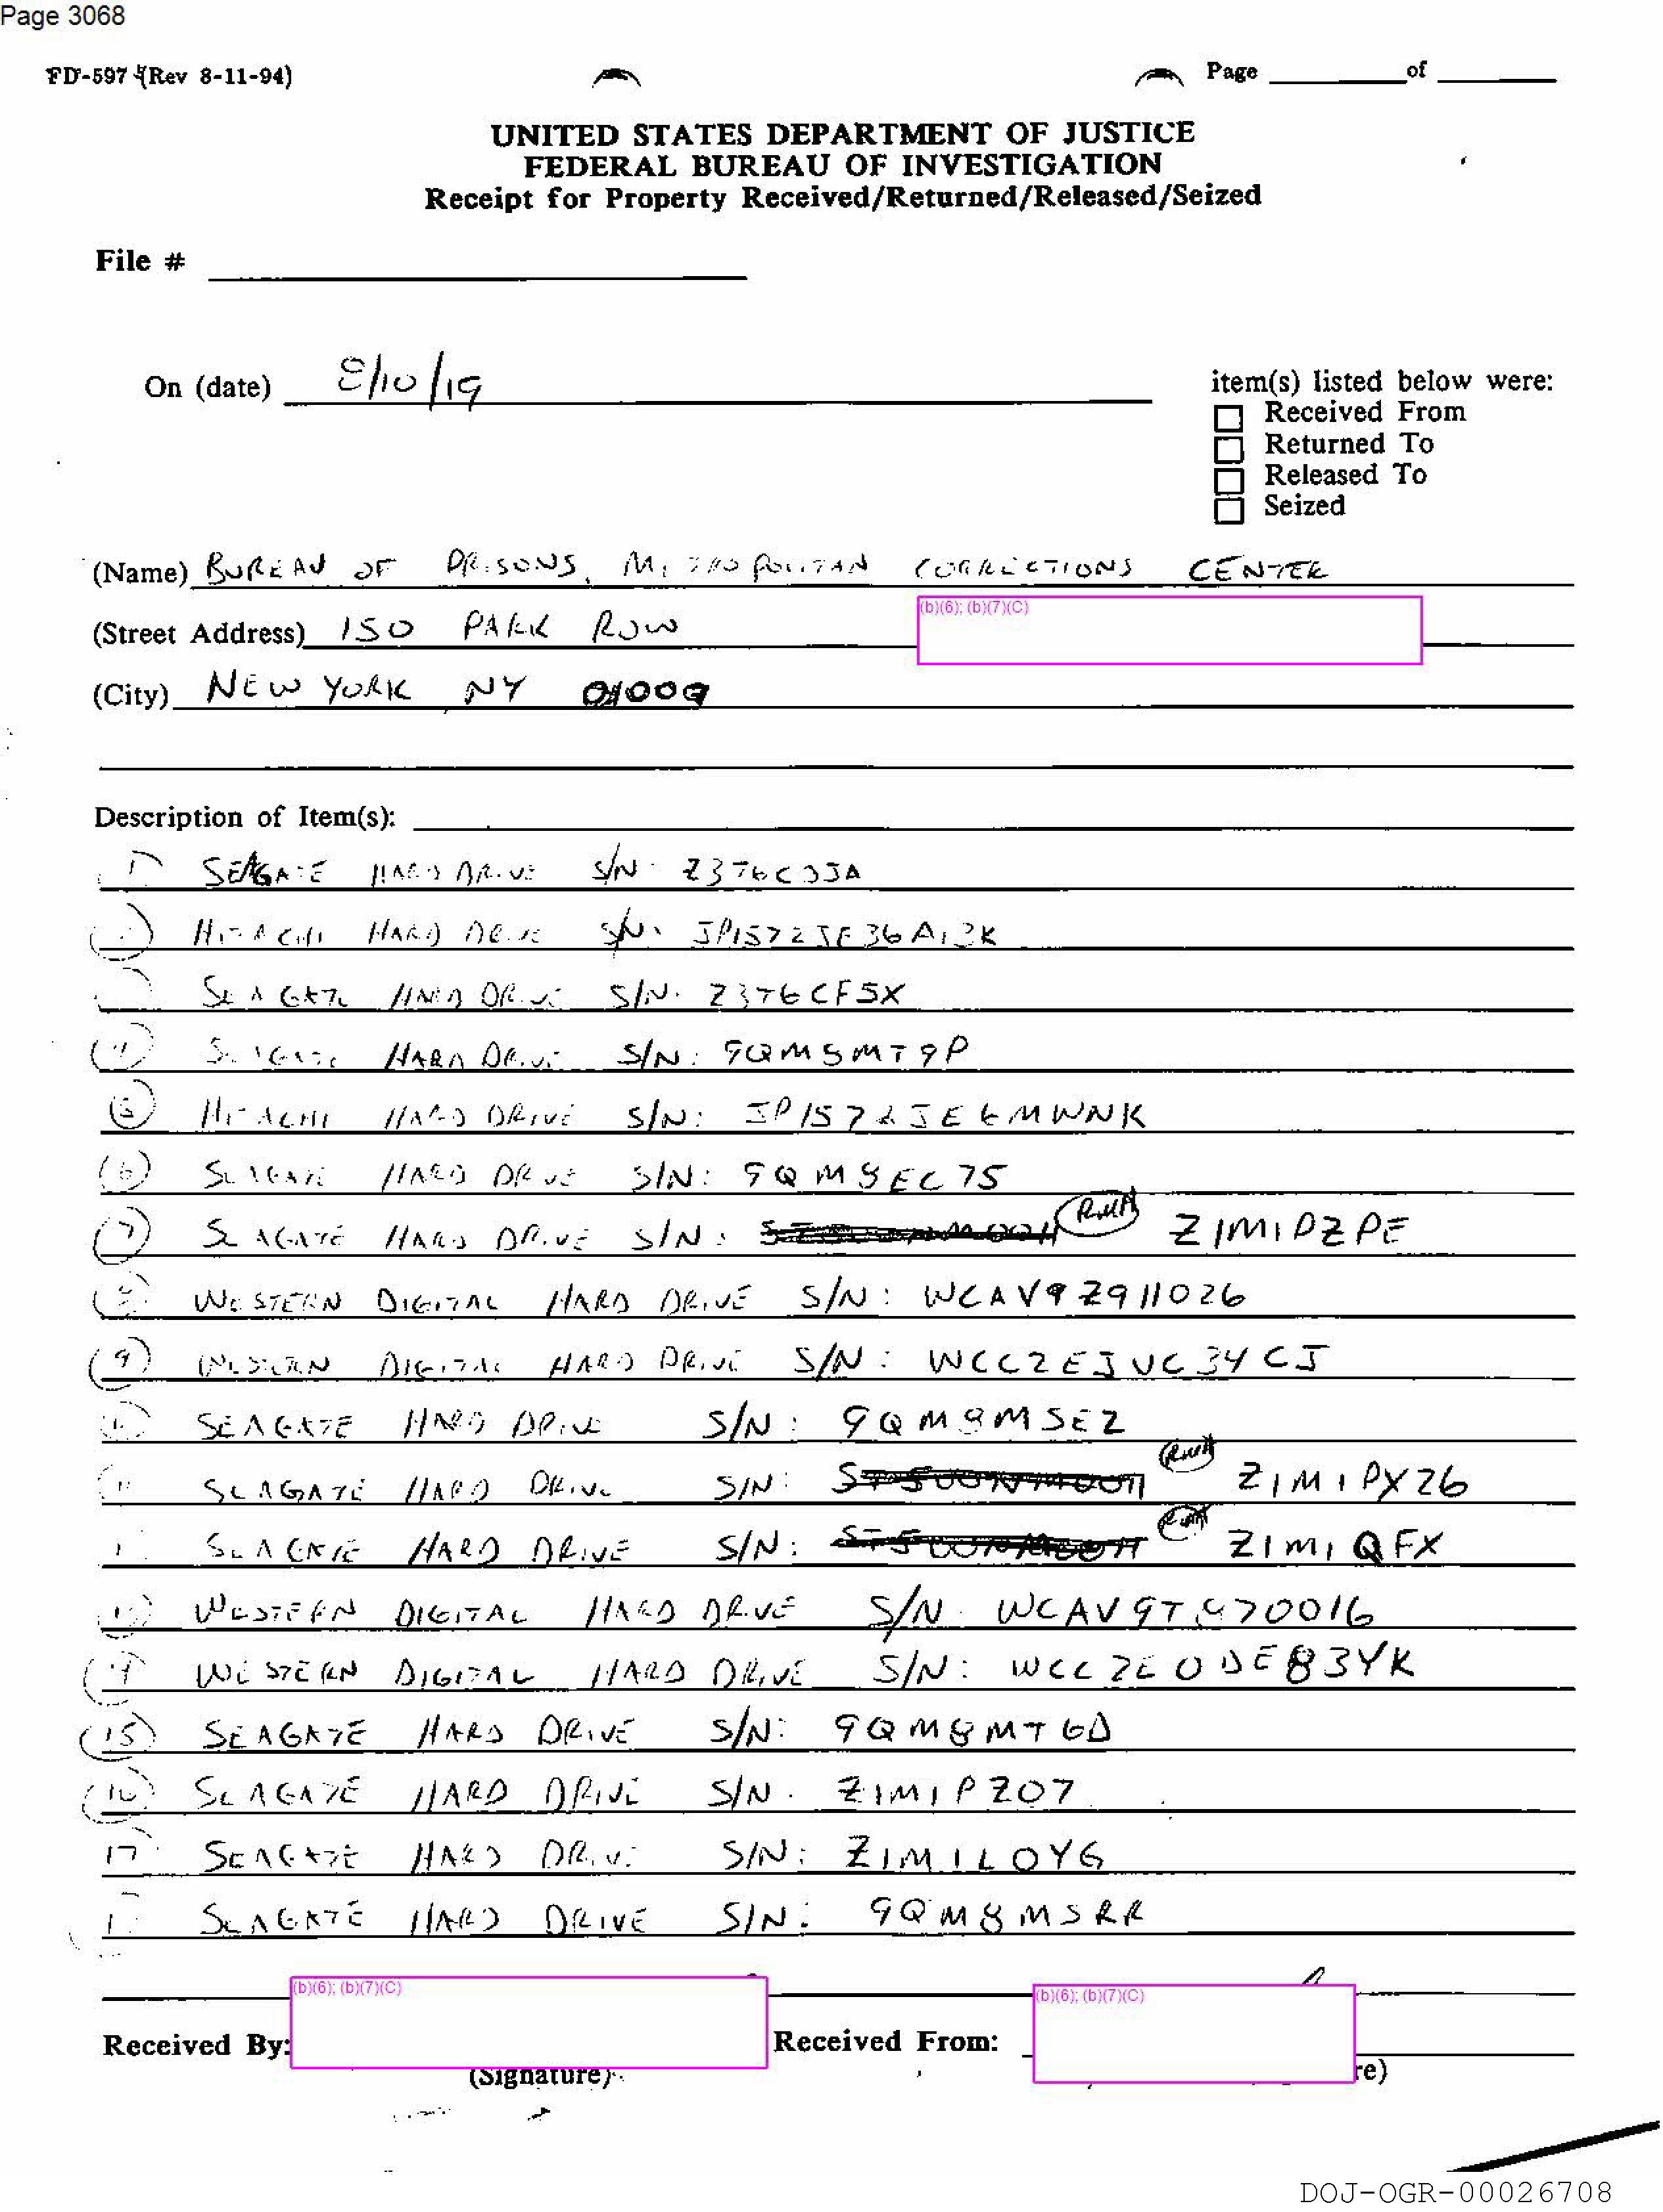 Page 3068
FD-597 (Rev 8-11-94)
Page of
UNITED STATES DEPARTMENT OF JUSTICE
FEDERAL BUREAU OF INVESTIGATION
Receipt for Property Received/Returned/Released/Seized
File #
On (date) 8/10/19
item(s) listed below were:
Received From
Returned To
Released To
Seized
(Name) BUREAU OF PRISONS, METROPOLITAN CORRECTIONS CENTER
(b)(6); (b)(7)(C)
(Street Address) 150 PARK ROW
(City) NEW YORK NY
Description of Item(s):
1) SEAGATE HARD DRIVE S/N
HITACHI HARD DRIVE S/N:
SEAGATE HARD DRIVE S/N: Z376CF5X
(4) SEAGATE HARD DRIVE S/N: 9QM5MT9P
(5) HITACHI HARD DRIVE S/N:
(6) SEAGATE HARD DRIVE S/N: 9QM8EC75
(7) SEAGATE HARD DRIVE S/N: Z1M1PZPE
(8) WESTERN DIGITAL HARD DRIVE S/N: WCAV9Z911026
(9) WESTERN DIGITAL HARD DRIVE S/N: WCC2EJVC34CJ
SEAGATE HARD DRIVE S/N: 9QM8MSEZ
(11 SEAGATE HARD DRIVE S/N: Z1M1PX26
SEAGATE HARD DRIVE S/N: Z1M1QFX
13) WESTERN DIGITAL HARD DRIVE S/N
(14 WESTERN DIGITAL HARD DRIVE S/N:
(15) SEAGATE HARD DRIVE S/N: 9QM8MT6D
(16) SEAGATE HARD DRIVE S/N. Z1M1PZ07
17 SEAGATE HARD DRIVE S/N: Z1M1L0YG
SEAGATE HARD DRIVE S/N: 9QM8MSRR
(b)(6); (b)(7)(C)
(b)(6); (b)(7)(C)
Received By: Received From:
(Signature) re)
DOJ-OGR-00026708